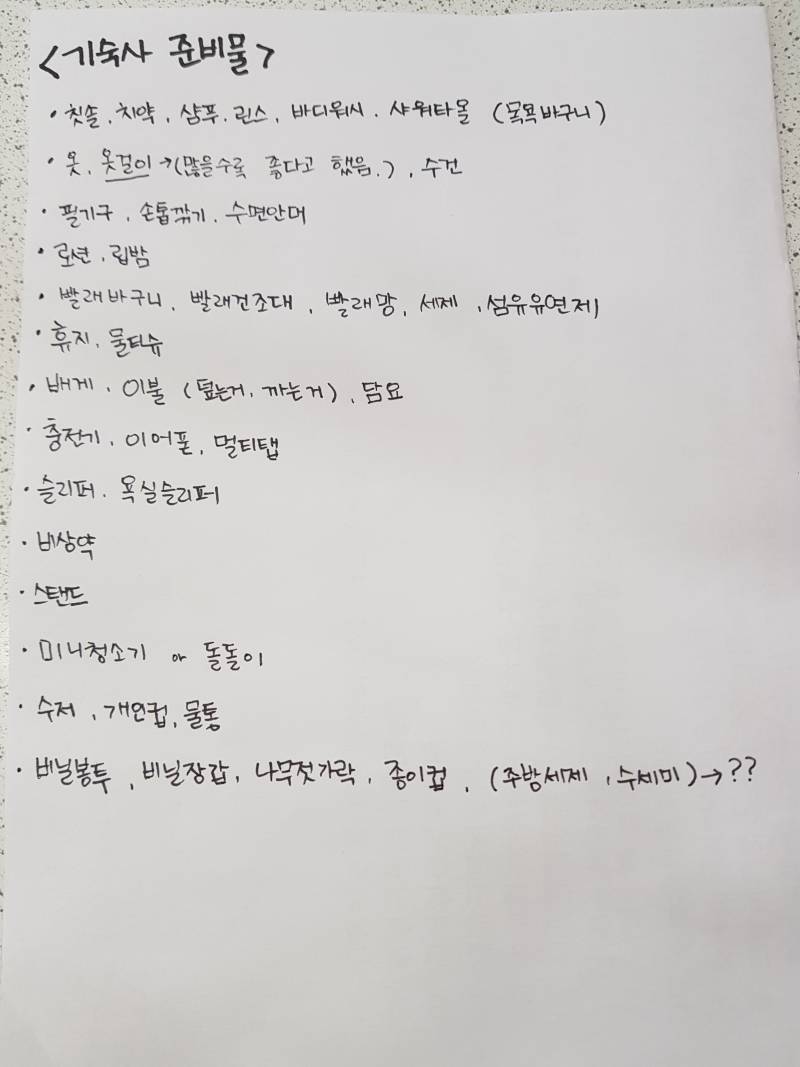 <기숙사 준비물>
· 칫솔, 치약, 샴푸, 린스, 바디워시, 샤워타올 (목욕바구니)
· 옷, 옷걸이→(많을수록 좋다고 했음.), 수건
· 필기구, 손톱깎기, 수면안대
· 로션, 립밤
· 빨래바구니, 빨래건조대, 빨래망, 세제, 섬유유연제
· 휴지, 물티슈
· 배게, 이불 (덮는거, 까는거), 담요
· 충전기, 이어폰, 멀티탭
· 슬리퍼, 욕실슬리퍼
· 비상약
· 스탠드
· 미니청소기 or 돌돌이
· 수저, 개인컵, 물통
· 비닐봉투, 비닐장갑, 나무젓가락, 종이컵, (주방세제, 수세미)→??